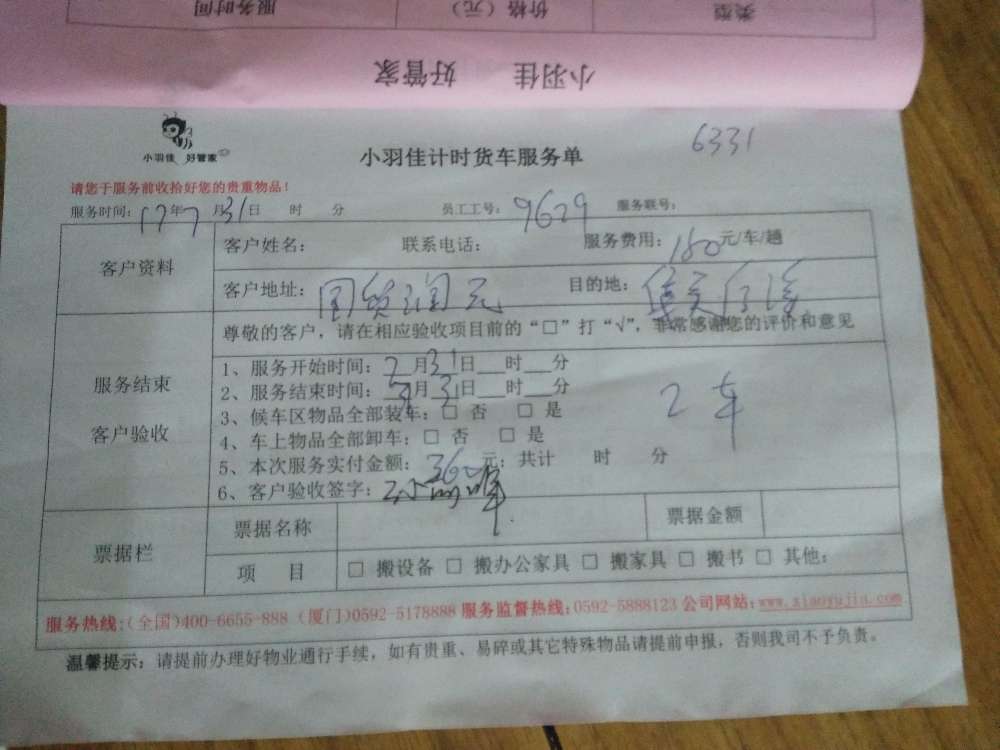 服务时间 价格（元） 类型
小羽佳 好管家
小羽佳 好管家
小羽佳计时货车服务单
6331
请您于服务前收拾好您的贵重物品！
服务时间：17年7月31日 时 分 员工工号：9629 服务联号：
客户资料
客户姓名： 联系电话： 服务费用：180元/车/趟
客户地址：国贸润园 目的地：
服务结束
客户验收
尊敬的客户，请在相应验收项目前的“□”打“√”，非常感谢您的评价和意见
1、服务开始时间：7月31日___时___分
2、服务结束时间：7月31日___时___分
3、候车区物品全部装车：□ 否 □ 是
4、车上物品全部卸车：□ 否 □ 是
5、本次服务实付金额：360元；共计 时 分
6、客户验收签字：
2车
票据栏
票据名称 票据金额
项 目 □ 搬设备 □ 搬办公家具 □ 搬家具 □ 搬书 □ 其他：
服务热线：(全国)400-6655-888 (厦门)0592-5178888 服务监督热线：0592-5888123 公司网站：www.xiaoyujia.com
温馨提示：请提前办理好物业通行手续，如有贵重、易碎或其它特殊物品请提前申报，否则我司不予负责。